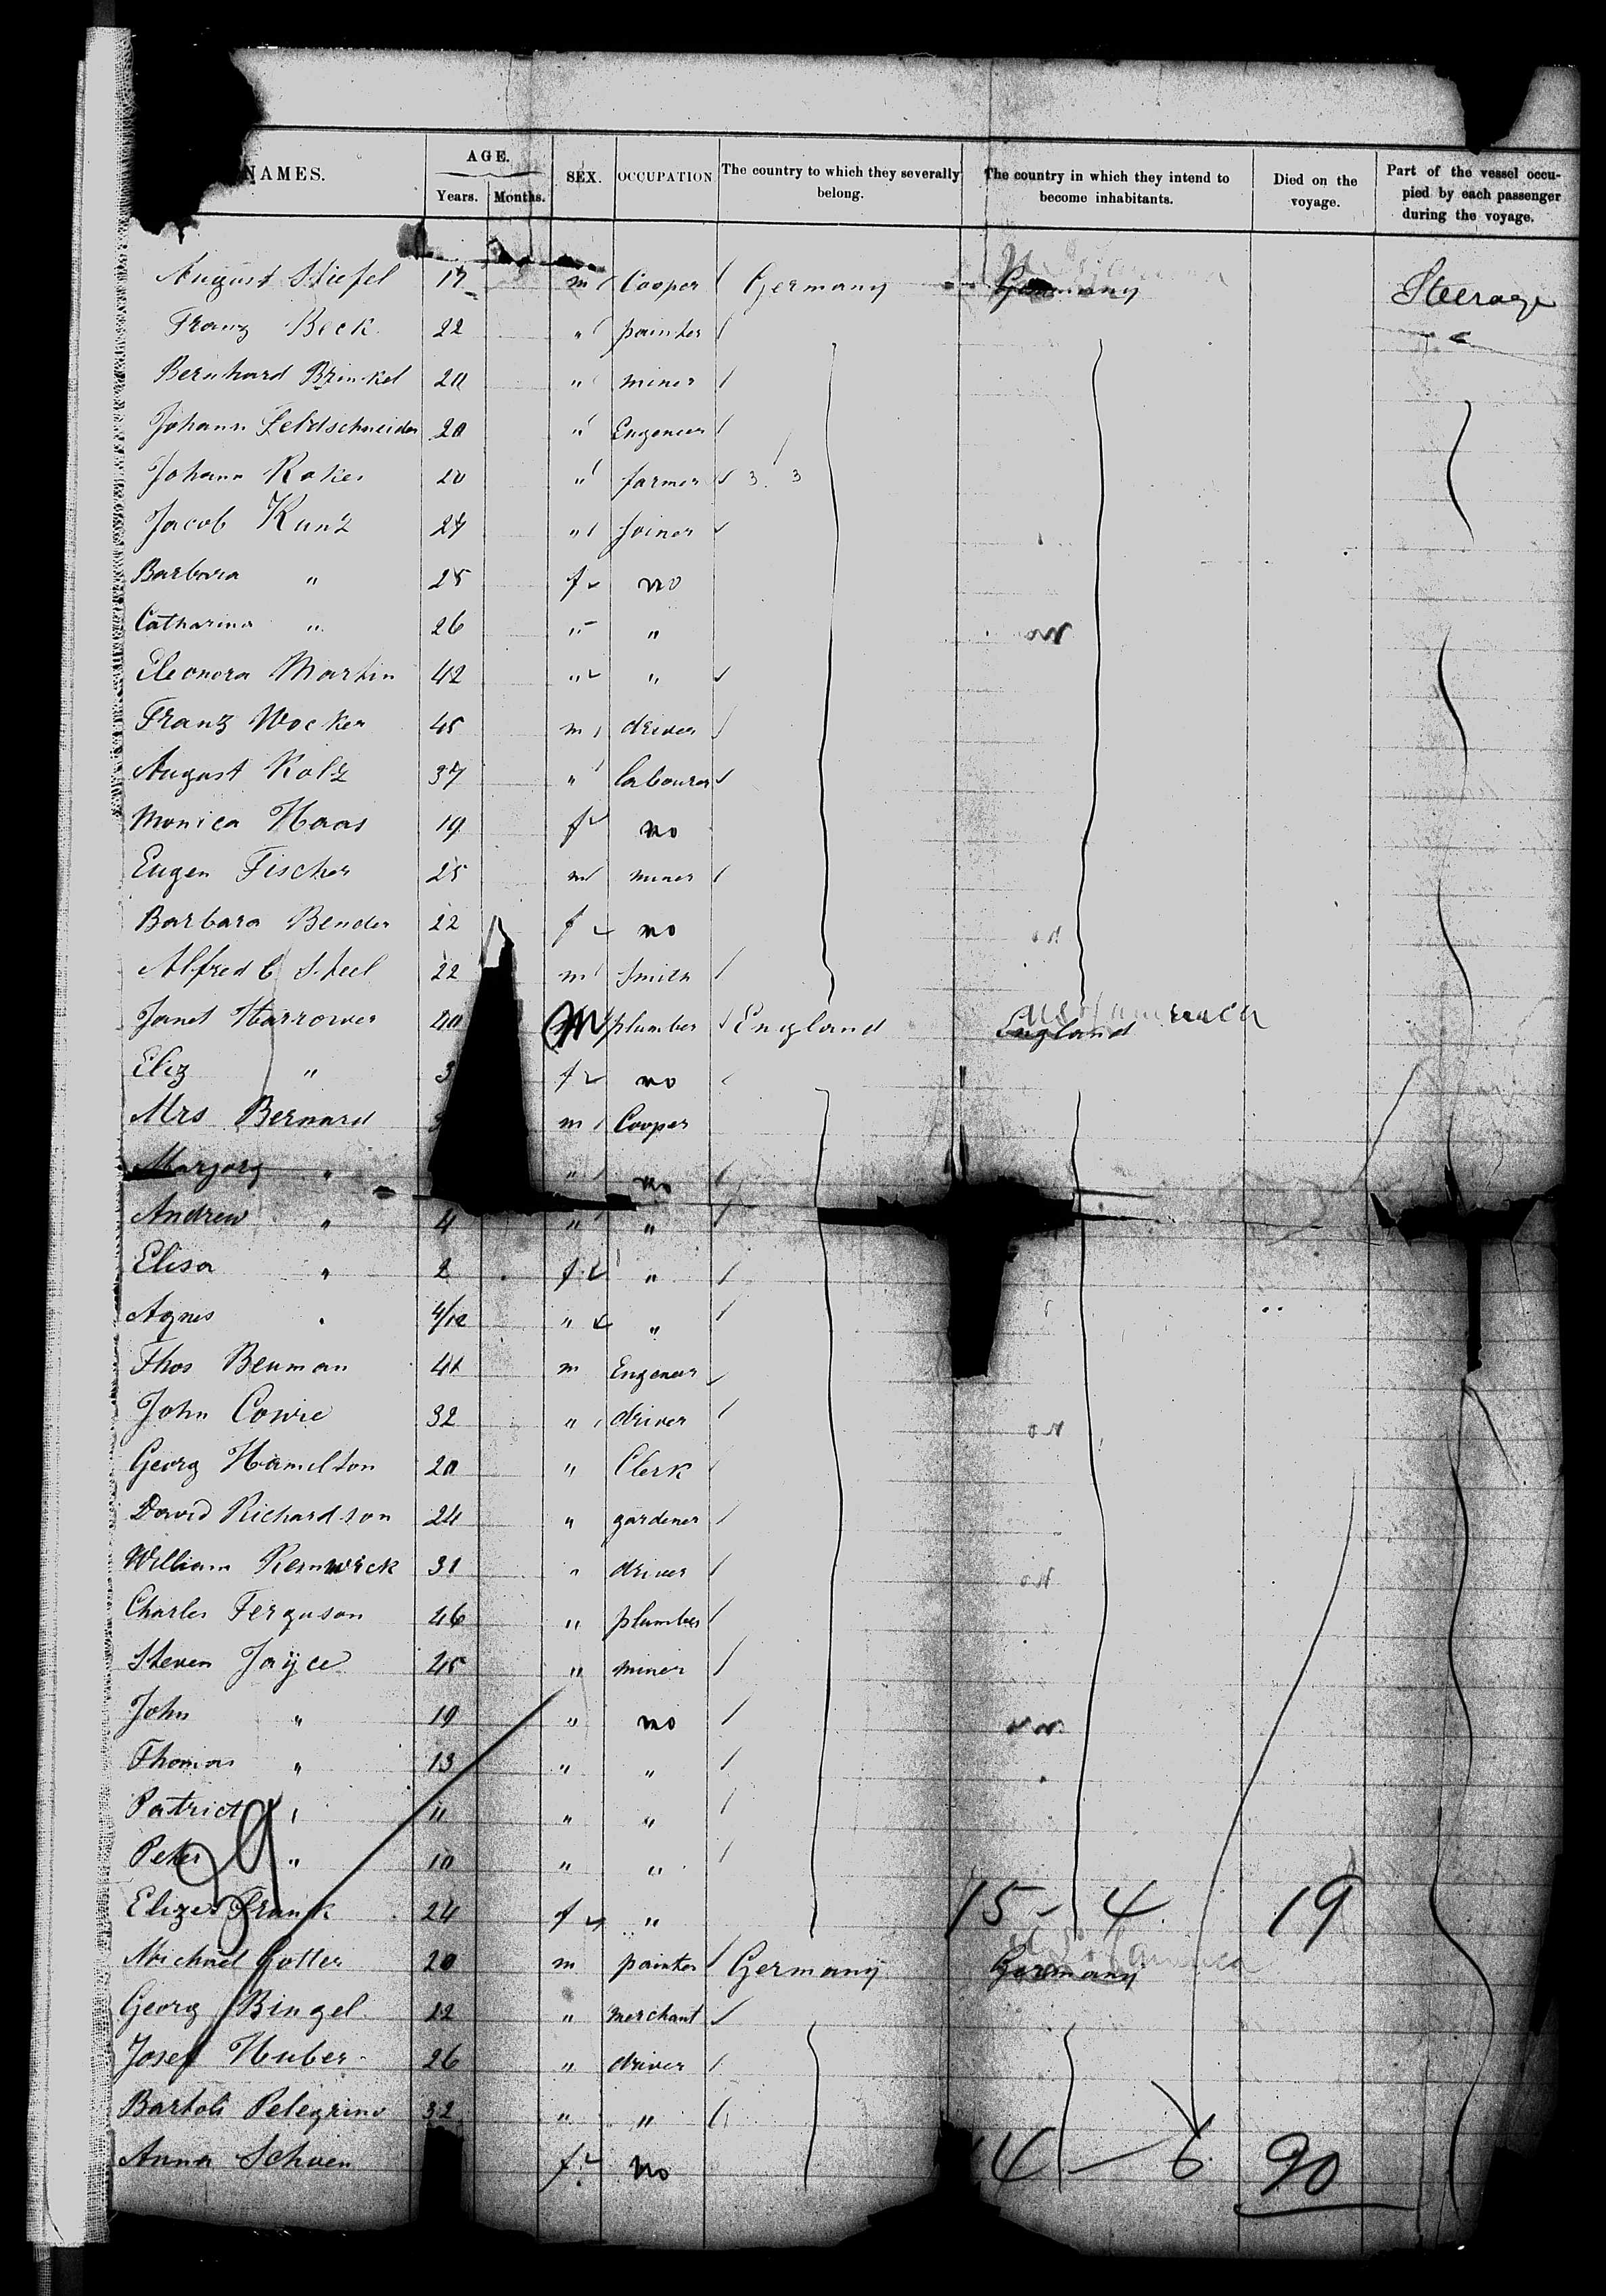 NAMES. AGE. Years. Months. SEX. OCCUPATION The country to which they severally belong. The country in which they intend to become inhabitants. Died on the voyage. Part of the vessel occupied by each passenger during the voyage.
August Stiefel 17 m Cooper Germany Germany Steerage
Franz Beck 22 " painter
Bernhard Brinkel 20 " miner
Johann Feldschneider 20 " Engeneer
Johann Roker 20 " farmer 3 3
Jacob Kunz 27 " joiner
Barbara " 25 f no
Catharina " 26 " "
Eleonora Martin 42 " "
Franz Wocker 45 m driver
August Kolz 37 " labourer
Monica Haas 19 f no
Eugen Fischer 25 m miner
Barbara Bender 22 f no
Alfred C Steel 22 m Smith
Janet Harrower 40 M plumber England England
Eliz " 3 f no
Mrs Bernard 3 m Cooper
Marjory " " no
Andrew " 4 " "
Elisa " 2 f "
Agnes " 4/12 " "
Thos Benman 41 m Engeneer
John Cowie 32 " driver
Georg Hamilton 20 " Clerk
David Richardson 24 " gardener
William Remwick 31 " driver
Charles Ferguson 46 " plumber
Steven Joyce 45 " miner
John " 19 " no
Thomas " 13 " "
Patrick " 11 " "
Peter " 10 " "
Elize Frank 24 f " 15 - 4 19
Michael Gotter 20 m painter Germany Germany
Georg Bingel 22 " merchant
Josef Huber 26 " driver
Bartoli Pelegrino 32 " "
Anna Schoen f no 14 - 6 90